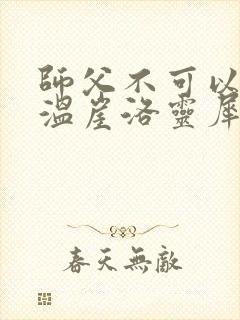 師父不可以
溫崖洛靈犀
春天無敵